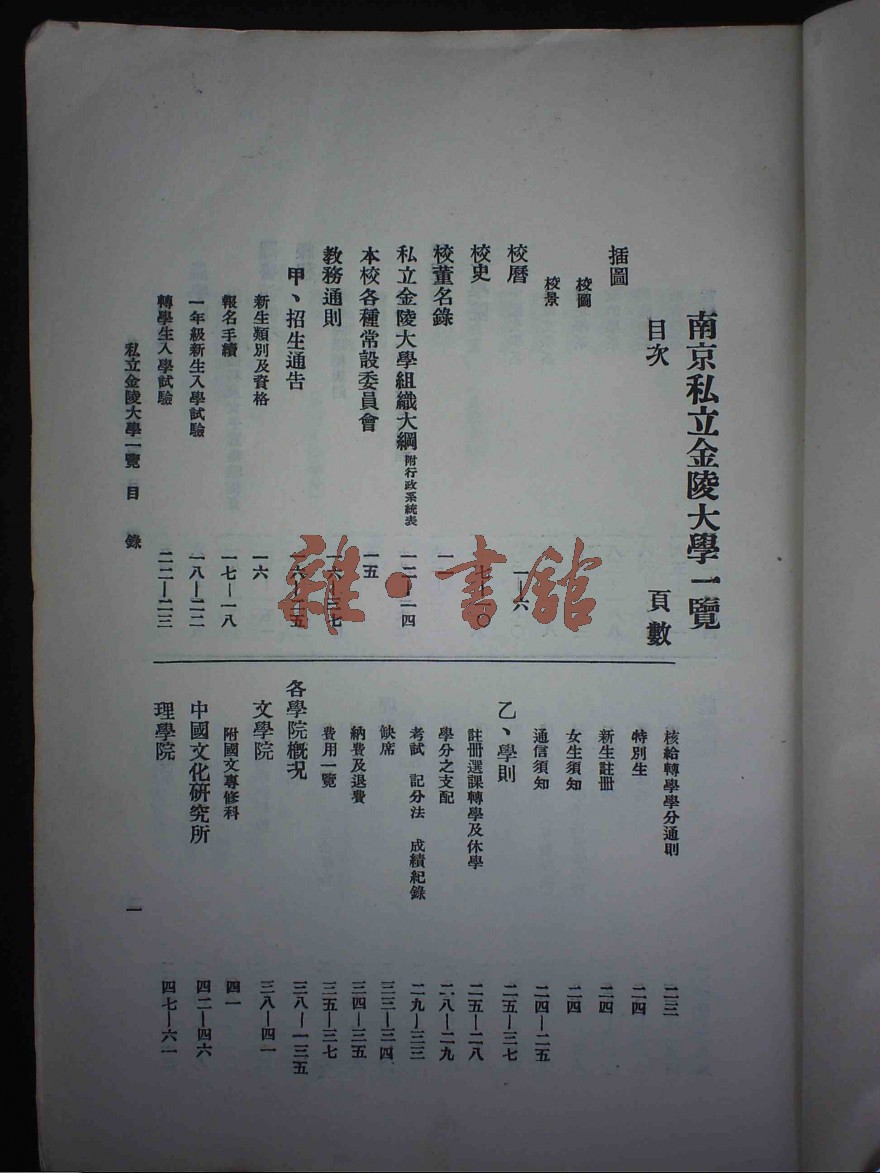 南京私立金陵大學一覽
目次 頁數
插圖
校圖
校景
校曆 一—六
校史 七—一〇
校董名錄 一一
私立金陵大學組織大綱 附行政系統表 一二—一四
本校各種常設委員會 一五
教務通則 一六—三七
甲、招生通告 一六—二五
新生類別及資格 一六
報名手續 一七—一八
一年級新生入學試驗 一八—二二
轉學生入學試驗 二二—二三
核給轉學學分通則 二三
特別生 二四
新生註冊 二四
女生須知 二四
通信須知 二四—二五
乙、學則 二五—三七
註冊選課轉學及休學 二五—二八
學分之支配 二八—二九
考試 記分法 成績紀錄 二九—三三
缺席 三三—三四
納費及退費 三四—三五
費用一覽 三五—三七
各學院概況 三八—一三五
文學院 三八—四一
附國文專修科 四一
中國文化研究所 四二—四六
理學院 四七—六一
私立金陵大學一覽 目 錄 一
雜·書館